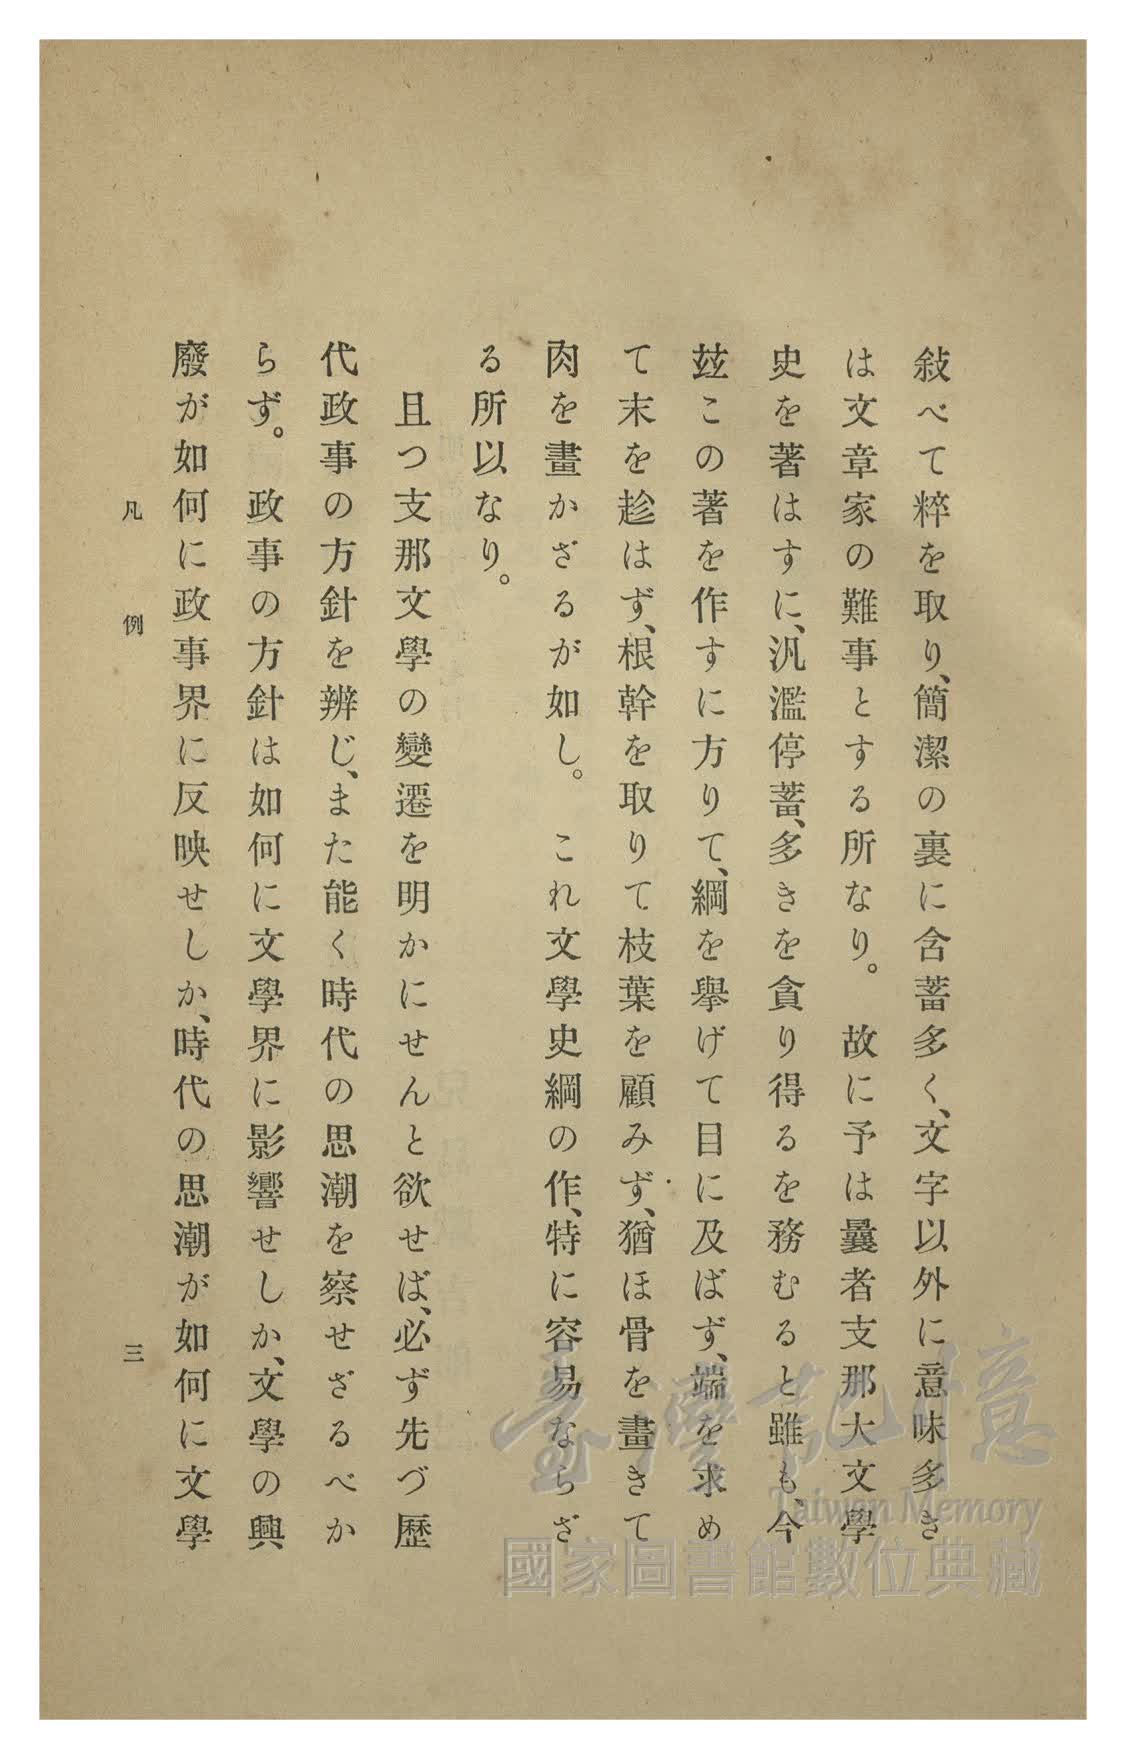 敍べて粹を取り、簡潔の裏に含蓄多く、文字以外に意味多き
は文章家の難事とする所なり。故に予は曩者支那大文學
史を著はすに、汎濫停蓄、多きを貪り得るを務むると雖も、今
玆この著を作すに方りて、綱を擧げて目に及ばず、端を求め
て末を趁はず、根幹を取りて枝葉を顧みず、猶ほ骨を畫きて
肉を畫かざるが如し。これ文學史綱の作、特に容易ならざ
る所以なり。
且つ支那文學の變遷を明かにせんと欲せば、必ず先づ歷
代政事の方針を辨じ、また能く時代の思潮を察せざるべか
らず。政事の方針は如何に文學界に影響せしか、文學の興
廢が如何に政事界に反映せしか、時代の思潮が如何に文學
凡例
三
臺灣記憶
Taiwan Memory
國家圖書館數位典藏